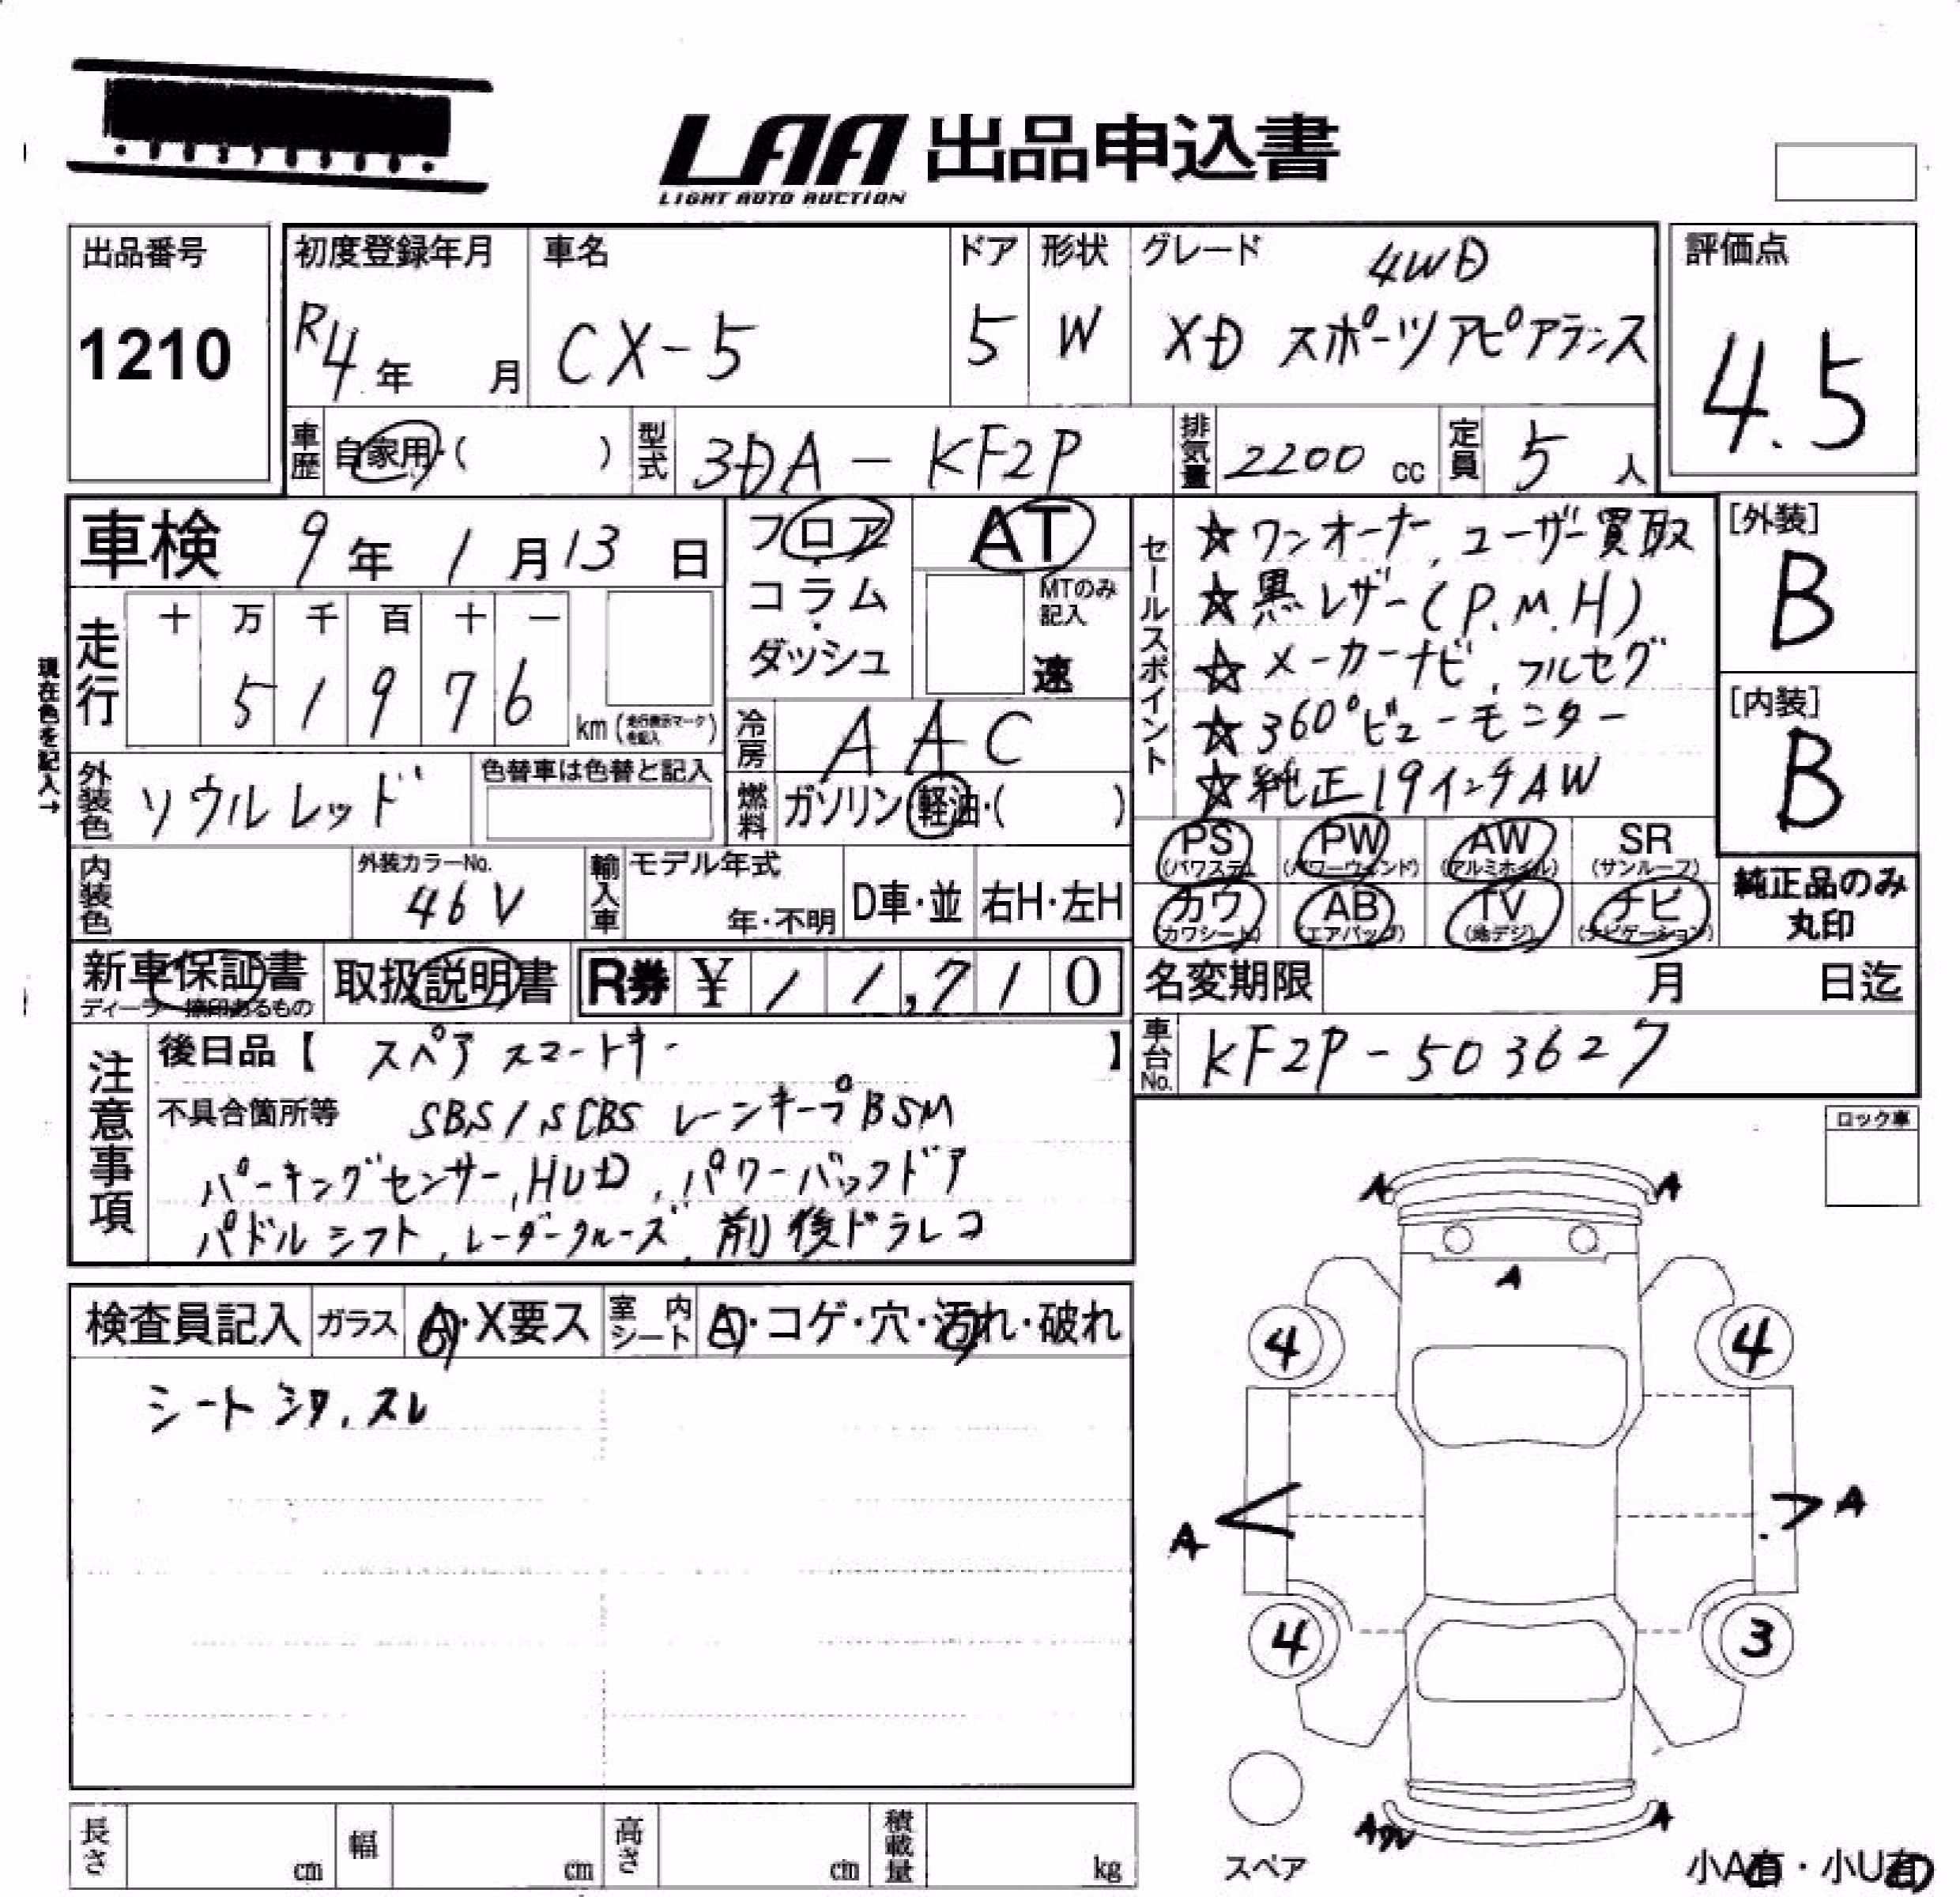 LAA 出品申込書
LIGHT AUTO AUCTION
出品番号
1210
初度登録年月
R4年 月
車名
CX-5
ドア
5
形状
W
グレード
4WD
XD スポーツアピアランス
評価点
4.5
車歴
自家用・( )
型式
3DA-KF2P
排気量
2200 cc
定員
5 人
車検 9年 1月 13日
フロア
コラム
ダッシュ
AT
MTのみ記入
速
セールスポイント
☆ワンオーナー、ユーザー買取
☆黒レザー(P.M.H)
☆メーカーナビ、フルセグ
☆360°ビューモニター
☆純正19インチAW
[外装]
B
[内装]
B
現在色を記入→
走行
十 万 千 百 十 一
5 1 9 7 6
km (走行表示マークを記入)
冷房
AAC
外装色
ソウルレッド
色替車は色替と記入
燃料
ガソリン・軽油・( )
PS (パワステ)
PW (パワーウィンド)
AW (アルミホイル)
SR (サンルーフ)
カワ (カワシート)
AB (エアバッグ)
TV (地デジ)
ナビ (ナビゲーション)
純正品のみ
丸印
内装色
外装カラーNo.
46V
輸入車
モデル年式
年・不明
D車・並
右H・左H
新車保証書
ディーラー捺印あるもの
取扱説明書
R券 ¥ 1 1,710
名変期限 月 日迄
車台No.
KF2P-503627
注意事項
後日品【 スペアスマートキー 】
不具合箇所等 SBS/SCBS レーンキープ BSM
パーキングセンサー、HUD、パワーバックドア
パドルシフト、レーダークルーズ、前後ドラレコ
ロック車
検査員記入
ガラス
A・X要ス
室内シート
A・コゲ・穴・汚れ・破れ
シートシワ、スレ
A A
A
4 4
A A
4 3
A
スペア
小A有・小U有
長さ cm
幅 cm
高さ cm
積載量 kg